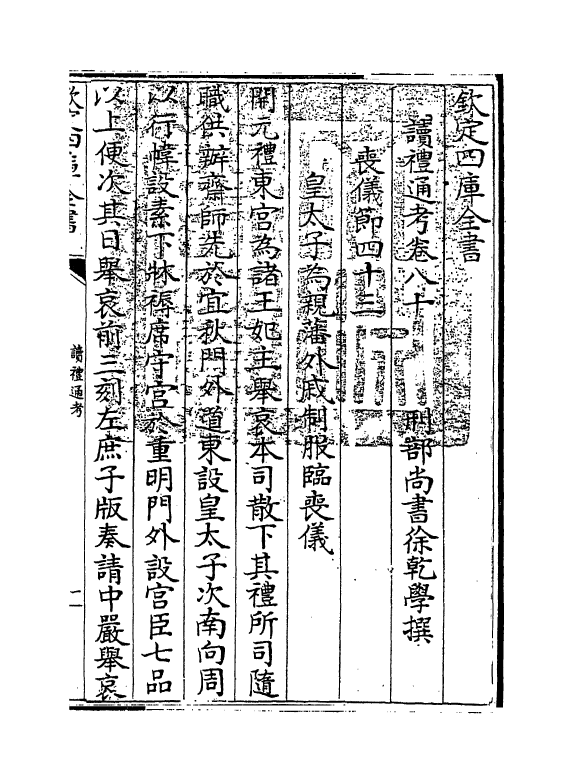 欽定四庫全書
讀禮通考卷八十　刑部尚書徐乾學撰
喪儀節四十三
皇太子為親藩外戚制服臨喪儀
開元禮東宮為諸王妃主舉哀本司散下其禮所司隨
職供辦齋師先於宜秋門外道東設皇太子次南向周
以行帷設素下牀褥席守宮於重明門外設宮臣七品
以上便次其日舉哀前三刻左庶子版奏請中嚴舉哀
欽定四庫全書
讀禮通考